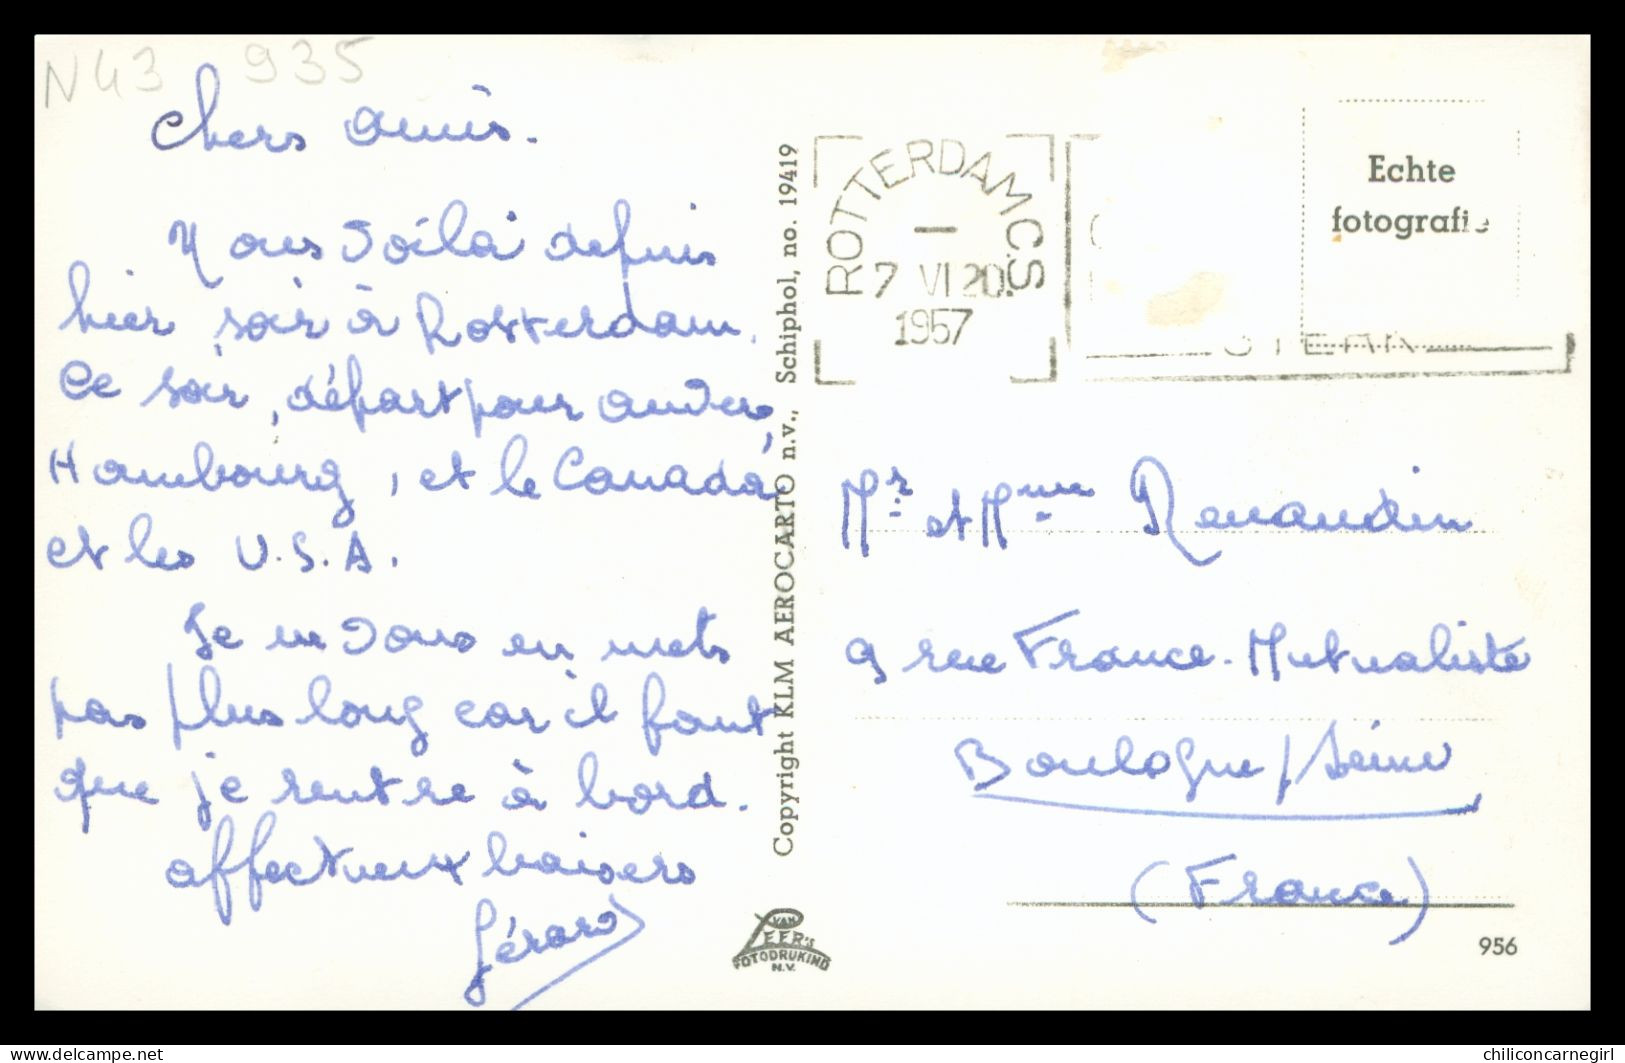 N43 935
Chers amis.
Nous voilà depuis
hier soir à Rotterdam.
Ce soir, départ pour Anvers,
Hambourg, et le Canada
et les U.S.A.
Je ne vous en mets
pas plus long car il faut
que je rentre à bord.
affectueux baisers
Gérard
Copyright KLM AEROCARTO n.v., Schiphol, no. 19419
VAN
LEER'S
FOTODRUKIND
N.V.
ROTTERDAM C.S
7 VI 20.
1957
Echte
fotografie
Mr et Mme Renaudin
9 rue France-Mutualiste
Boulogne/Seine
(France)
956
chiliconcarnegirl